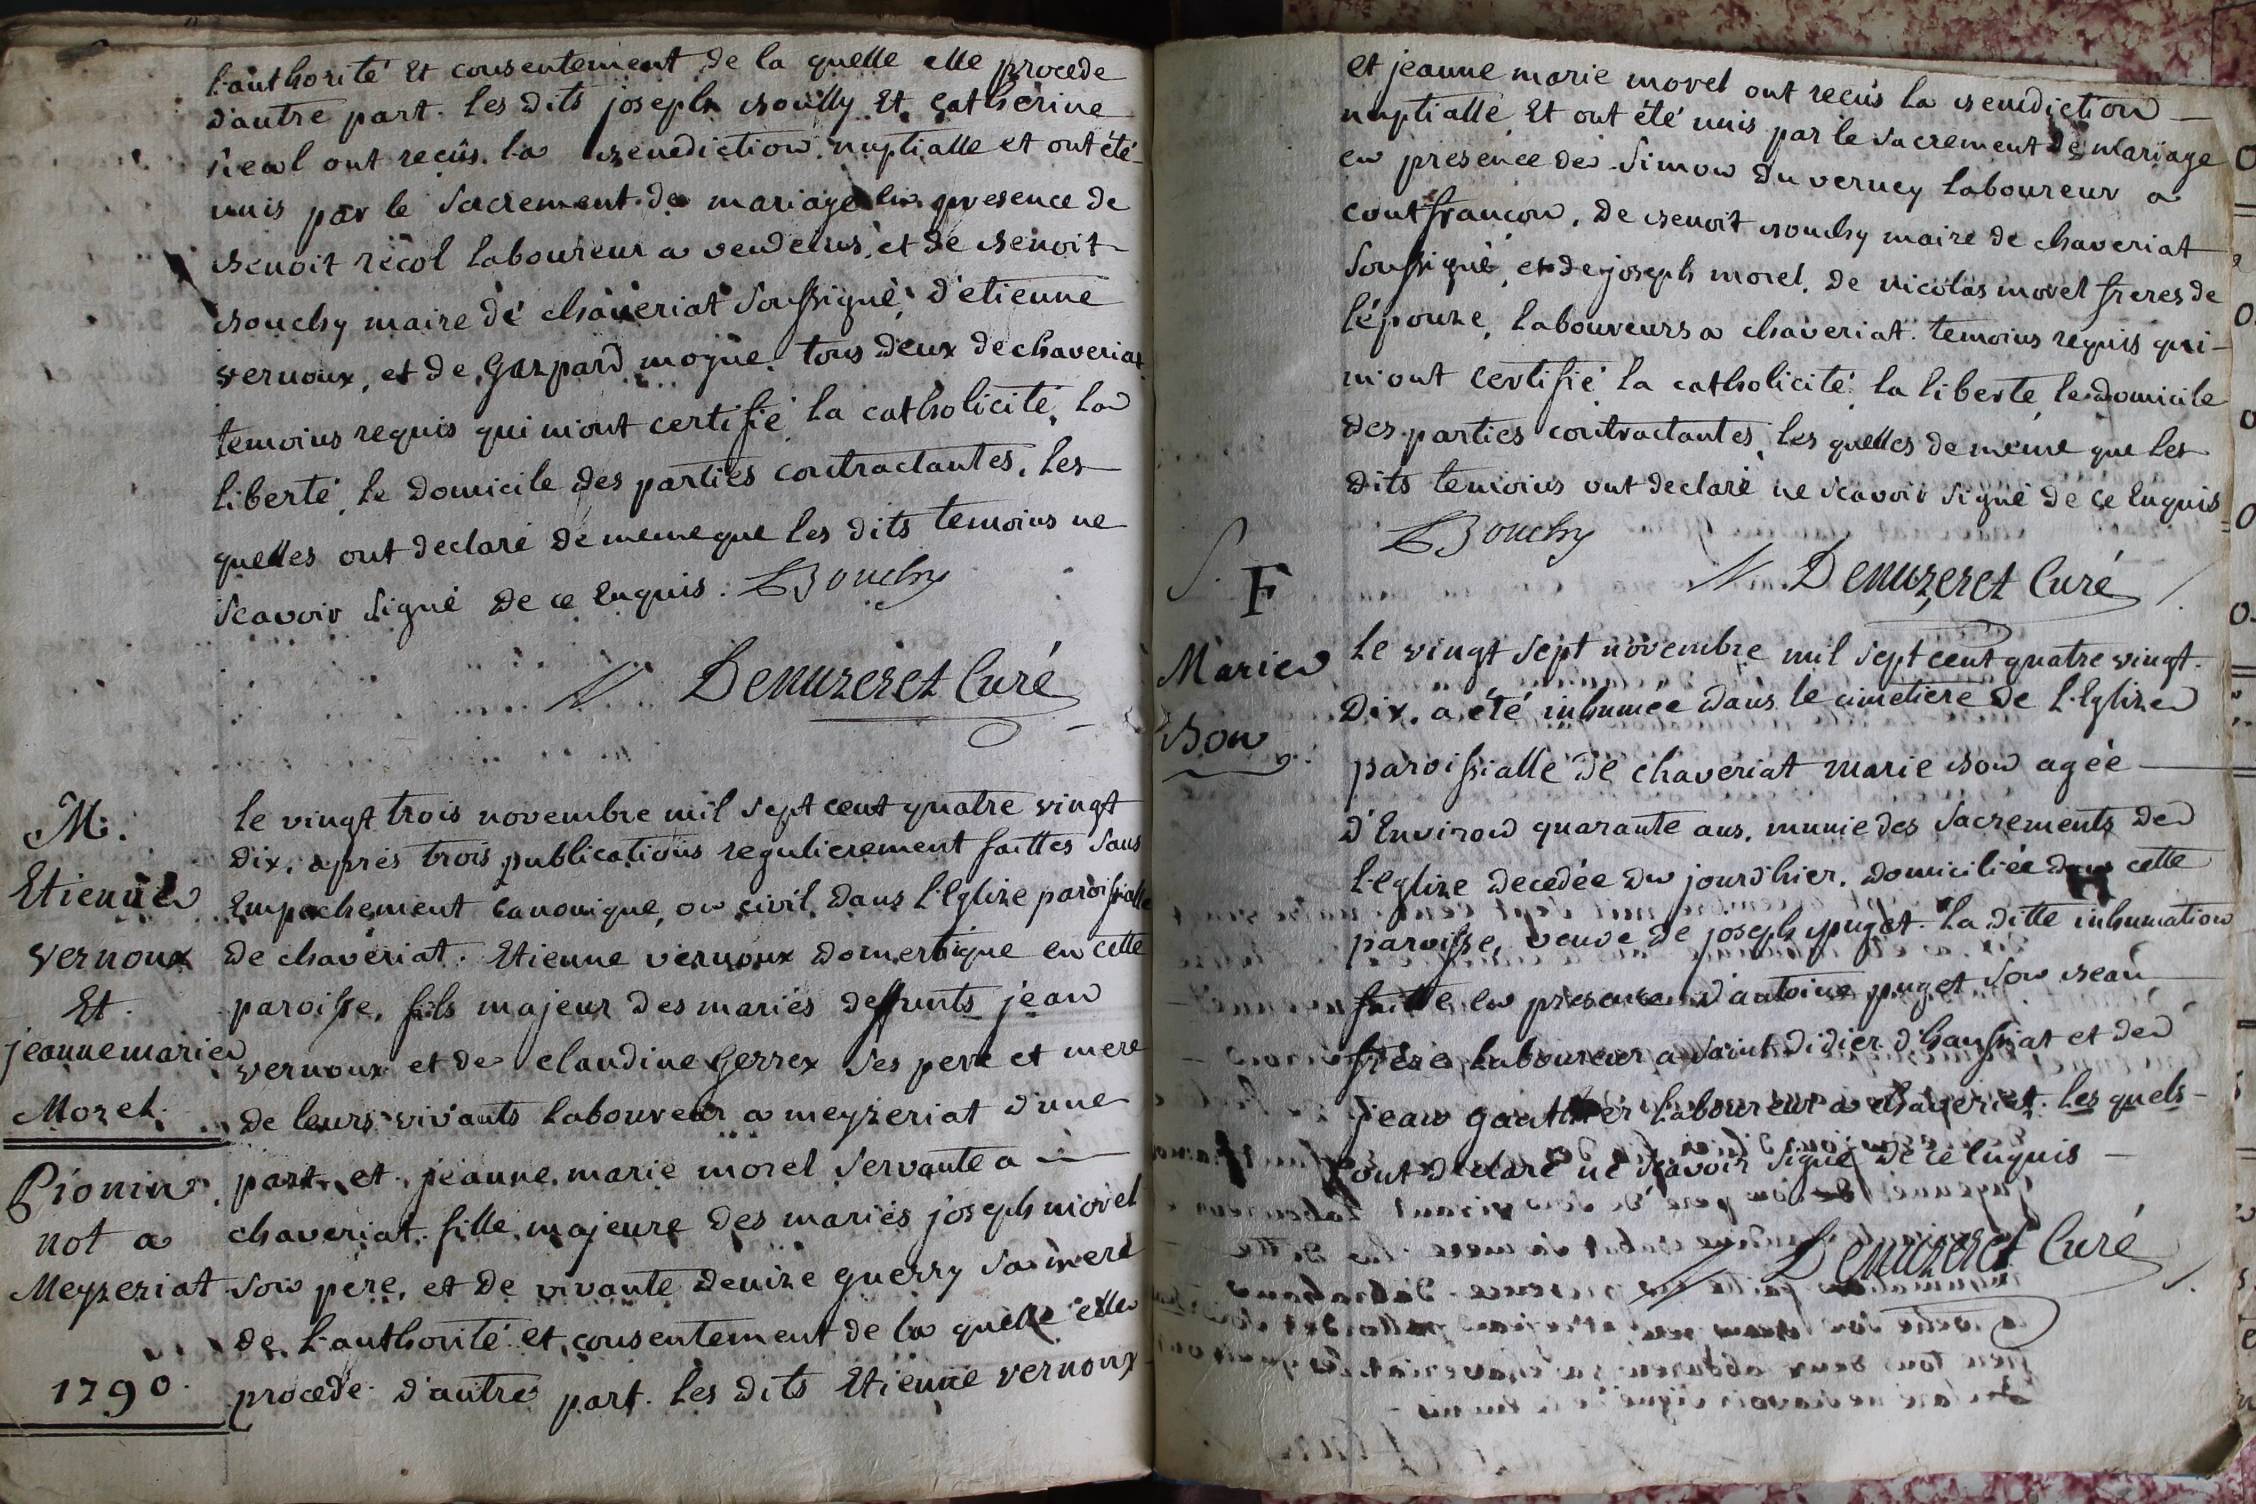 l'authorité Et consentement de la quelle elle procede
d'autre part. les dits joseph Bouilly Et Catherine
ont reçûs la Benediction nuptialle et ont été
unis par le sacrement de mariage en presence de
Benoit recol laboureur a vendeins, et de Benoit
Bouchy maire de chaveriat soussigné, d'etienne
vernoux, et de Gaspard moyne. tous deux de chaveriat
temoins requis qui m'ont certifié la catholicité, la
liberté, le domicile des parties contractantes, les
quelles ont declaré de meme que les dits temoins ne
scavoir signé de ce Enquis. Bouchy
Denuzeret Curé
M.
Etienne
vernoux
Et
jeanne marie
Morel.
Pionin
not a
Meyzeriat
1790.
le vingt trois novembre mil sept cent quatre vingt
dix, aprés trois publications regulierement faittes sans
Empechement Canonique, ou civil dans l'Eglize paroissialle
de chaveriat. Etienne vernoux domestique en cette
paroisse, fils majeur des mariés deffunts jean
vernoux et de claudine Gerrex ses pere et mere
de leurs vivants laboureur a meyzeriat d'une
part. et jeanne marie morel servante a
chaveriat. fille majeure des mariés joseph morel
son père, et de vivante denize guerry sa mere
de l'authorité et consentement de la quelle elle
procede d'autre part. les dits Etienne vernoux
et jeanne marie morel ont reçûs la Benediction
nuptialle, Et ont été unis par le sacrement de mariage
en presence de Simon du verney laboureur a
contfrançon, de Benoit Bouchy maire de chaveriat
soussigné, et de joseph morel, de nicolas morel freres de
l'épouze, laboureurs a chaveriat. temoins requis qui
m'ont certifié la catholicité la liberté le domicile
des parties contractantes, les quelles de meme que les
dits temoins ont declaré ne scavoir signé de ce Enquis
Bouchy
Denuzeret Curé
S. F
Marie
Bon
le vingt sept novembre mil sept cent quatre vingt
dix, a été inhumée dans le cimetiere de l'Eglize
paroissialle de chaveriat marie Bon agée
d'Environ quarante ans, munie des sacrements de
l'Eglize decedée du jourd'hier, domiciliée dans cette
paroisse, veuve de joseph puget. la ditte inhumation
faitte en presence d'antoine puget son Beau
frère laboureur a saint didier d'haussiat et de
jean gauthier laboureur a chaveriat. les quels
ont declaré ne scavoir signé de ce Enquis
Denuzeret Curé